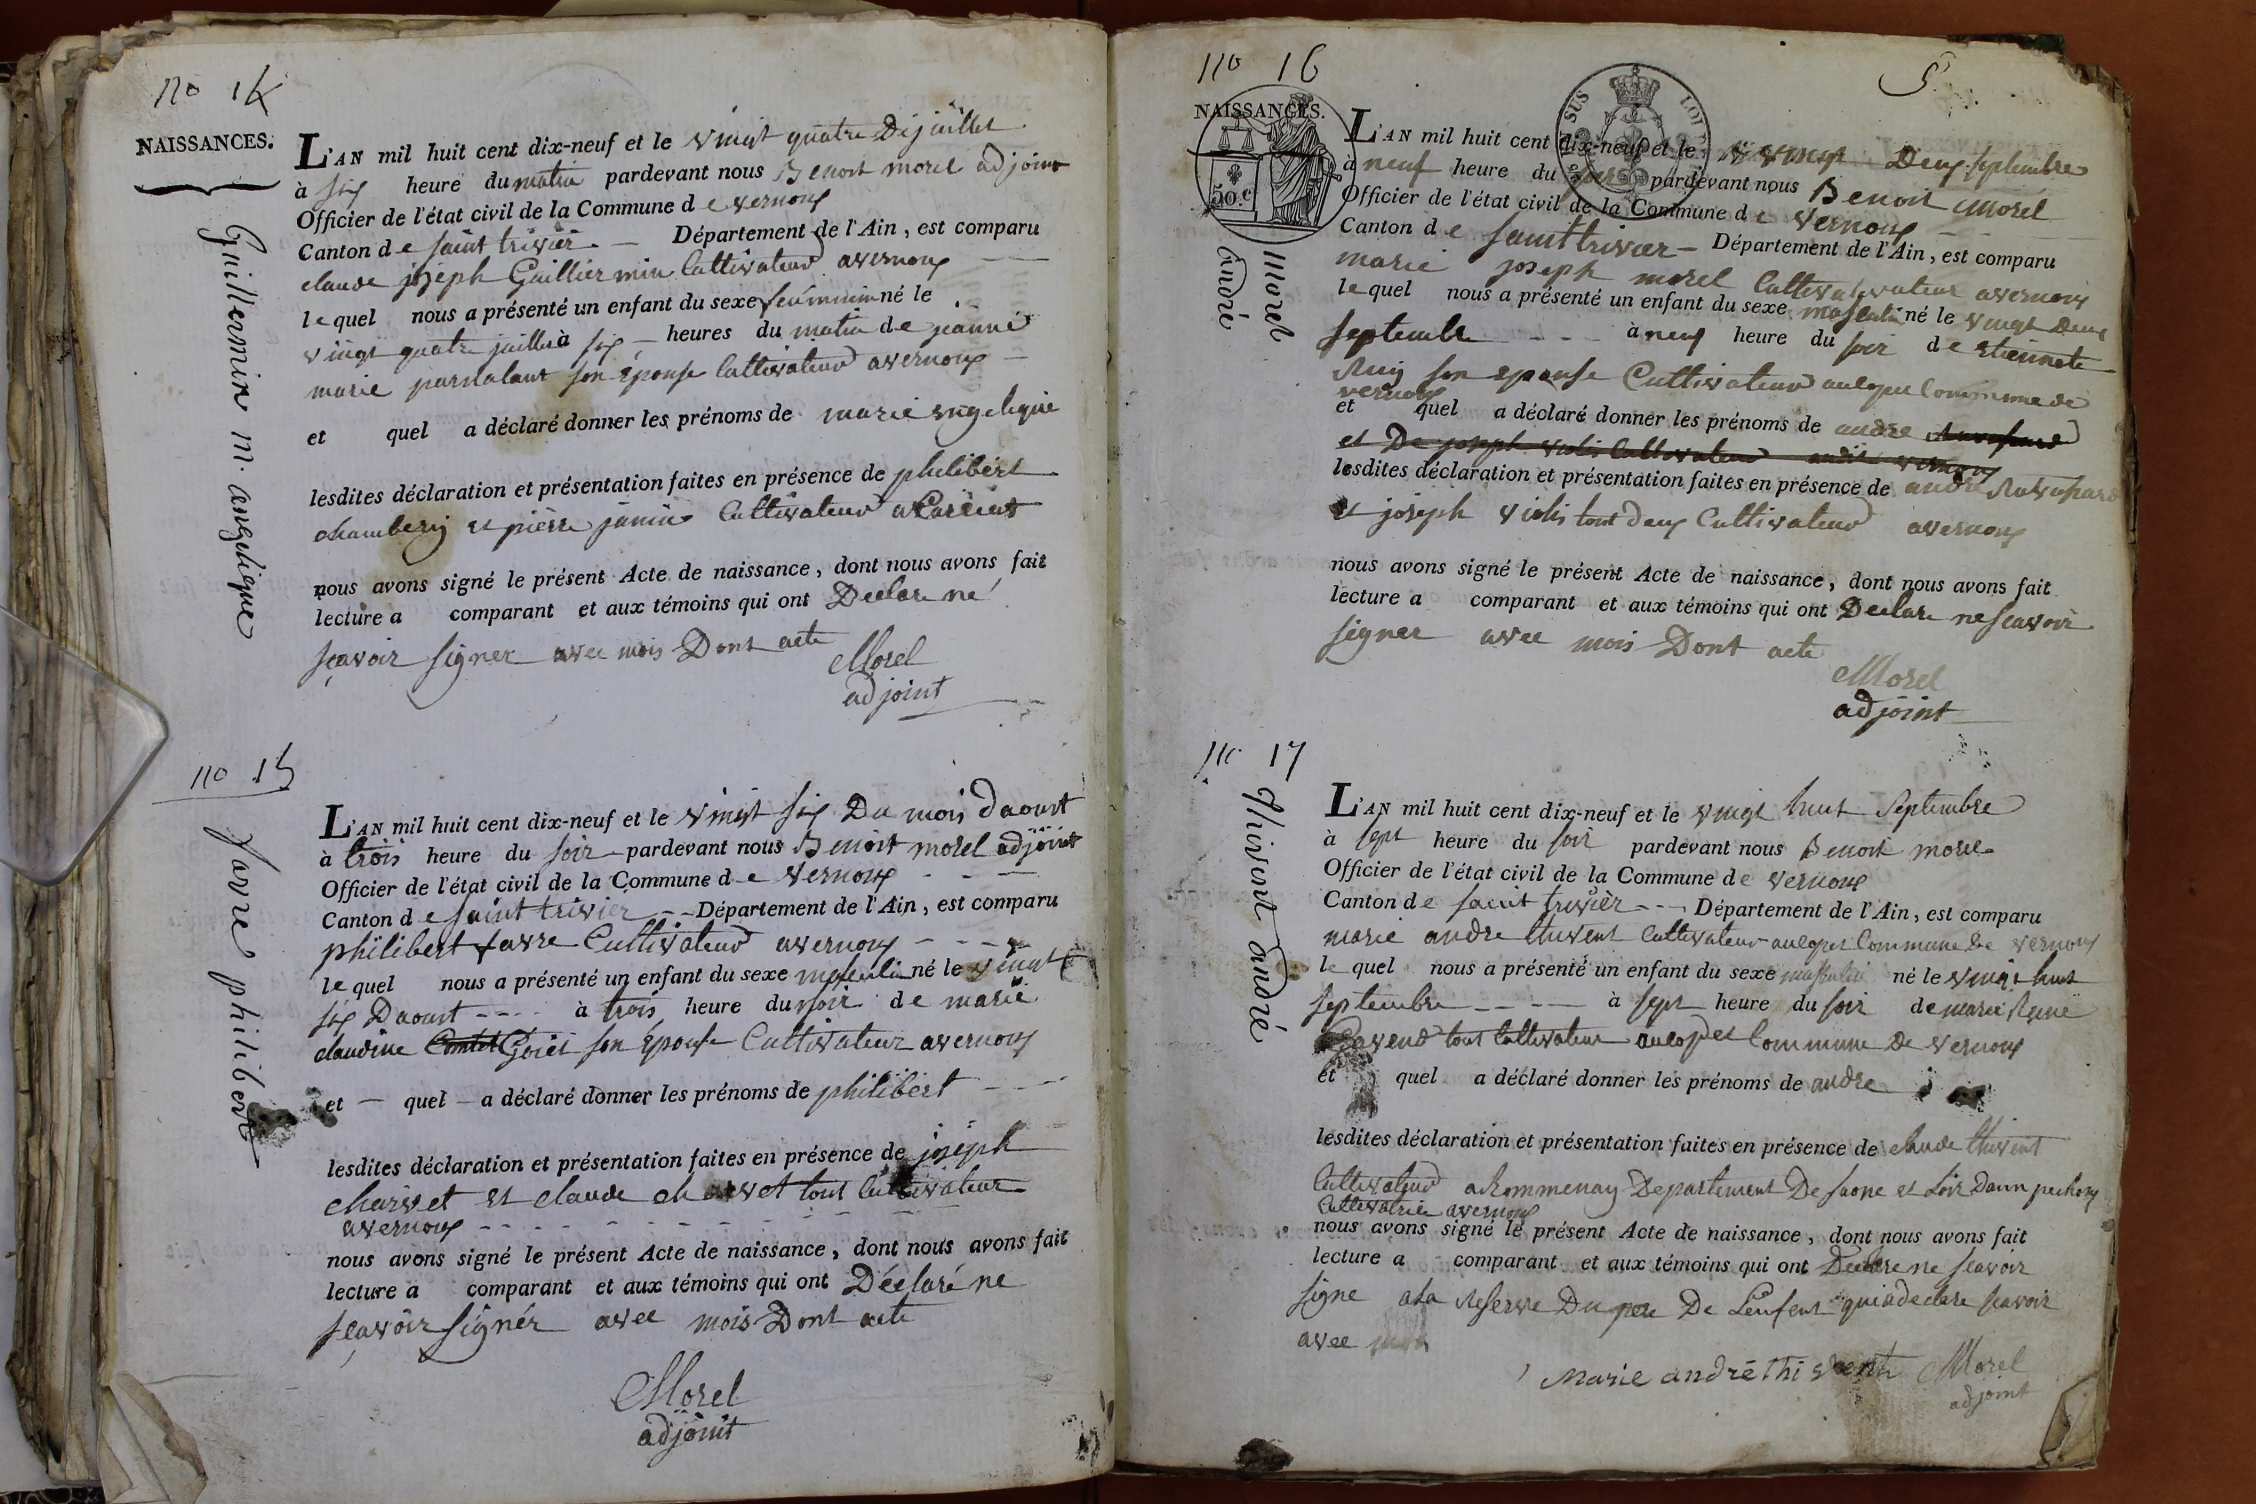 no 14
NAISSANCES.
Guillermin m. angelique
L'AN mil huit cent dix-neuf et le vingt quatre De juillet
à six heure du matin pardevant nous Benoit morel adjoint
Officier de l'état civil de la Commune de vernoux
Canton de saint trivier - Département de l'Ain, est comparu
claude joseph Guilliermin Cultivateur avernoux
lequel nous a présenté un enfant du sexe feuminin né le
vingt quatre juillet à six - heures du matin de jeanne
marie son Epouse Cultivateur avernoux
et quel a déclaré donner les prénoms de marie engelique
lesdites déclaration et présentation faites en présence de philibert
chambery et pierre janin Cultivateur
nous avons signé le présent Acte de naissance, dont nous avons fait
lecture a comparant et aux témoins qui ont Déclare ne
sçavoir signer avec mois Dont acte
Morel
adjoint
no 15
favre philibert
L'AN mil huit cent dix-neuf et le vingt six Du mois daoust
à trois heure du soir pardevant nous Benoit morel adjoint
Officier de l'état civil de la Commune de vernoux
Canton de saint trivier - - Département de l'Ain, est comparu
philibert favre Cultivateur avernoux
lequel nous a présenté un enfant du sexe masculin né le vingt
six Daoust - - - - à trois heure du soir de marie
claudine son Epouse Cultivateur avernoux
et - quel - a déclaré donner les prénoms de philibert
lesdites déclaration et présentation faites en présence de joseph
charvet et claude charvet tout Cultivateur
avernoux
nous avons signé le présent Acte de naissance, dont nous avons fait
lecture a comparant et aux témoins qui ont Déclaré ne
sçavoir signér avec mois Dont acte
Morel
adjoint
no 16
5
NAISSANCES.
50.c
SUS
morel
andré
L'AN mil huit cent dix-neuf et le vingt Deux septembre
à neuf heure du soir pardevant nous Benoit Morel
Officier de l'état civil de la Commune de vernoux
Canton de saint trivier - Département de l'Ain, est comparu
marie joseph morel Cultivatvateur avernoux
lequel nous a présenté un enfant du sexe masculin né le vingt Deux
septembre - - - à neuf heure du soir de etiennete
son epouse Cultivateur commune de
vernoux
et quel a déclaré donner les prénoms de andre
et De joseph violis Cultivateur audit vernoux
lesdites déclaration et présentation faites en présence de andre
et joseph violis tout deux Cultivateur avernoux
nous avons signé le présent Acte de naissance, dont nous avons fait
lecture a comparant et aux témoins qui ont Declare ne scavoir
signer avec mois Dont acte
Morel
adjoint
no 17
thivent andré
L'AN mil huit cent dix-neuf et le vingt huit septembre
à sept heure du soir pardevant nous Benoit morel
Officier de l'état civil de la Commune de vernoux
Canton de saint trivier - - - Département de l'Ain, est comparu
marie andre thivent Cultivateur Commune de vernoux
lequel nous a présenté un enfant du sexe masculin né le vingt huit
septembre - - - - à sept heure du soir de marie
tout Cultivateur Commune De vernoux
et quel a déclaré donner les prénoms de andre
lesdites déclaration et présentation faites en présence de claude thivent
Cultivateur aRommenay Departement De saone et Loir
avernoux
nous avons signé le présent Acte de naissance, dont nous avons fait
lecture a comparant et aux témoins qui ont Declare ne scavoir
signe ala reserve Du pere De Lenfent qui a declare scavoir
avec mois
Marie andré thivent Morel
adjoint